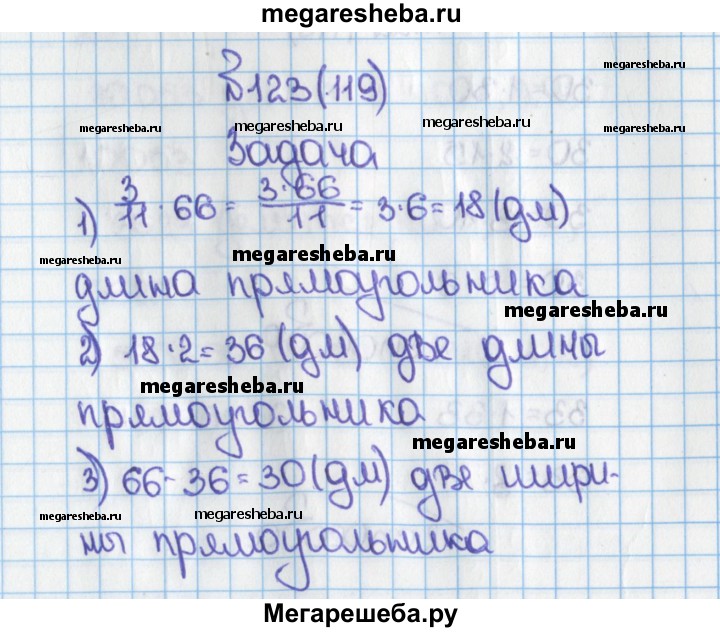 megaresheba.ru
№123(119)
megaresheba.ru megaresheba.ru megaresheba.ru megaresheba.ru
Задача
1) 3/11 · 66 = 3·66/11 = 3·6 = 18 (дм)
megaresheba.ru megaresheba.ru
длина прямоугольника
megaresheba.ru
2) 18·2 = 36 (дм) две длины
megaresheba.ru
прямоугольника
megaresheba.ru
3) 66 - 36 = 30 (дм) две шири-
megaresheba.ru megaresheba.ru
ны прямоугольника
Мегарешеба.ру